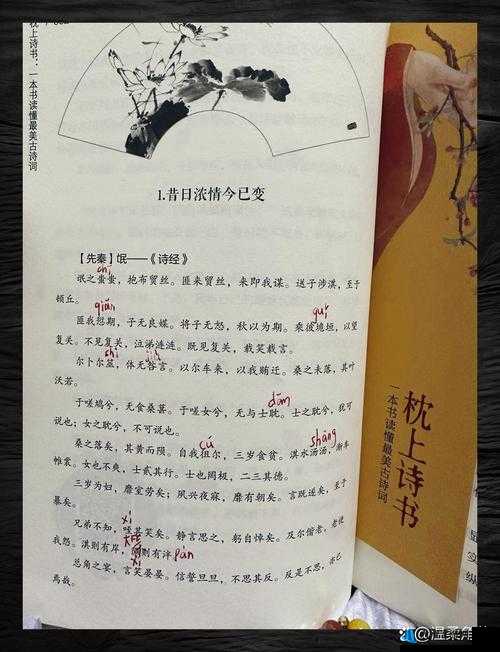 枕上诗书：一本书读懂最美古诗词
1.昔日浓情今已变
【先秦】氓——《诗经》
chī
氓之蚩蚩，抱布贸丝。匪来贸丝，来即我谋。送子涉淇，至于
顿丘。
qiān
guǐ
匪我愆期，子无良媒。将子无怒，秋以为期。乘彼垝垣，以望
复关。不见复关，泣涕涟涟。既见复关，载笑载言。
shì
jiù
尔卜尔筮，体无咎言。以尔车来，以我贿迁。桑之未落，其叶
沃若。
于嗟鸠兮，无食桑葚。于嗟女兮，无与士耽。士之耽兮，犹可
dān
说也；女之耽兮，不可说也。
cú
shāng
桑之落矣，其黄而陨。自我徂尔，三岁食贫。淇水汤汤，渐车
帷裳。女也不爽，士贰其行。士也罔极，二三其德。
三岁为妇，靡室劳矣；夙兴夜寐，靡有朝矣。言既遂矣，至于
暴矣。
xì
兄弟不知，咥其笑矣。静言思之，躬自悼矣。及尔偕老，老使
我怨。淇则有岸，隰则有泮
xí
pàn
总角之宴，言笑晏晏。信誓旦旦，不思其反。反是不思，亦已
焉哉。
枕上诗书
一本书读懂最美古诗词
@温柔角